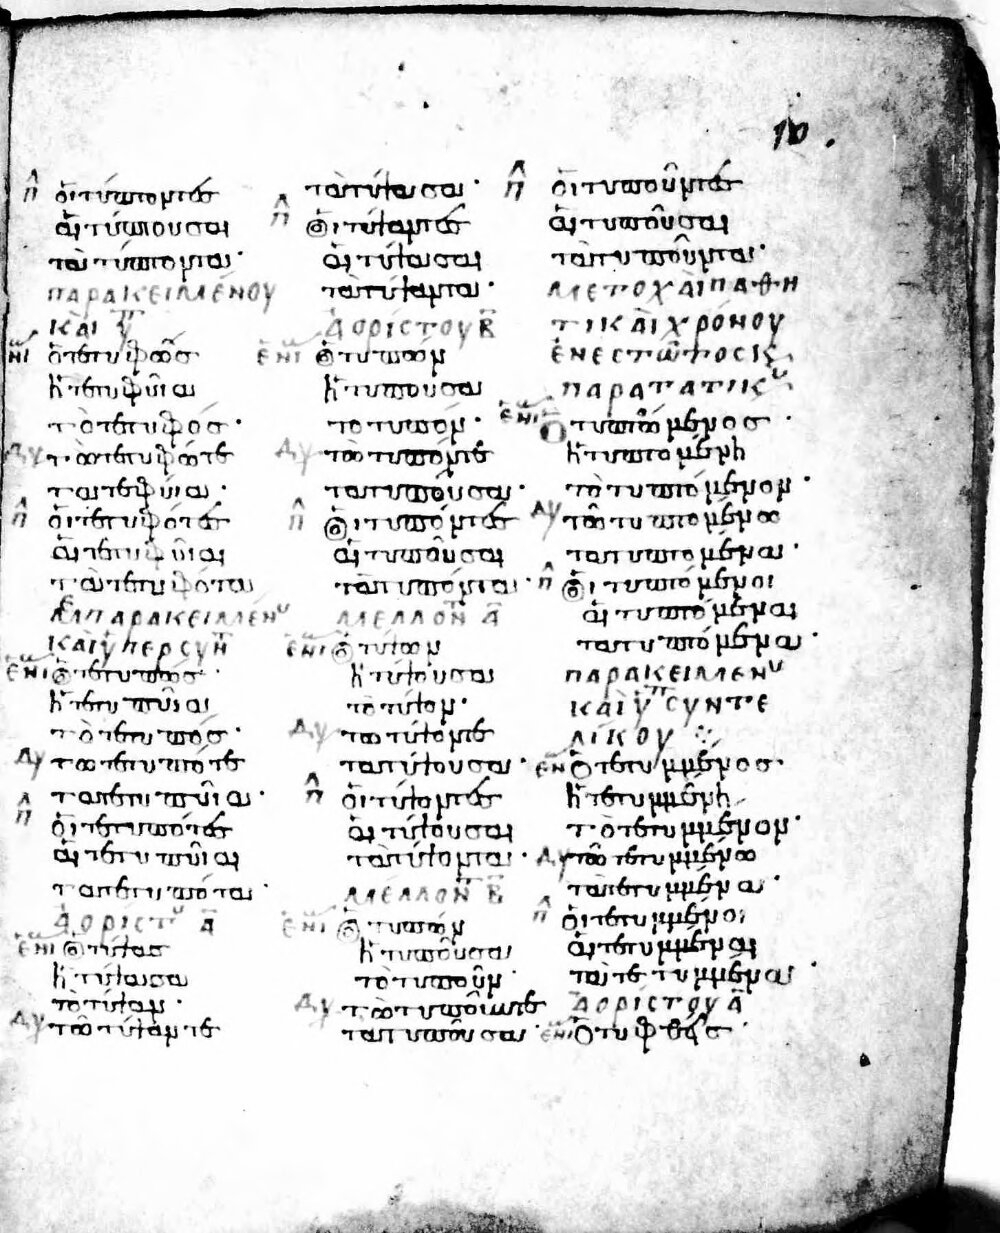 10.
π οἱ τύπτοντες
αἱ τύπτουσαι
τὰ τύπτοντα·
ΠΑΡΑΚΕΙΜΕΝΟΥ
ΚΑΙ ὙΠ
ἑνι ὁ τετυφὼς
ἡ τετυφῦια
τὸ τετυφός·
δυ τὼ τετυφότε
τα τετυφυία·
π οἱ τετυφότες
αἱ τετυφῦιαι
τὰ τετυφότα
ΜΠΑΡΑΚΕΙΜΕΝΟΥ
ΚΑΙ ὙΠΕΡΣΥΝ
ἑνι ὁ τετυπὼς·
ἡ τετυπῦια
τὸ τετυπός·
δυ τὼ τετυπότε
τα τετυπυία·
π οἱ τετυπότες
αἱ τετυπῦιαι
τὰ τετυπότα·
ἈΟΡΙΣΤΟΥ Α
ἑνι ὁ τύψας
ἡ τύψασα
τὸ τύψαν·
δυ τὼ τύψαντε
τὰ τύψασα·
π οἱ τύψαντες
αἱ τύψασαι
τὰ τύψαντα·
ἈΟΡΙΣΤΟΥ Β
ἑνι ὁ τυπών
ἡ τυποῦσα
τὸ τυπόν·
δυ τὼ τυπόντε
τὰ τυποῦσα·
π οἱ τυπόντες
αἱ τυποῦσαι
τὰ τυπόντα·
ΜΕΛΛΟΝΤ Α
ἑνι ὁ τύψων
ἡ τύψουσα
τὸ τύψον·
δυ τὼ τύψοντε
τὰ τύψουσα·
π οἱ τύψοντες
αἱ τύψουσαι
τὰ τύψοντα·
ΜΕΛΛΟΝΤ Β
ἑνι ὁ τυπών
ἡ τυποῦσα
τὸ τυποῦν·
δυ τὼ
τὰ τυποῦσα·
π οἱ τυποῦντες
αἱ τυποῦσαι
τὰ τυποῦντα·
ΜΕΤΟΧΑΙ ΠΑΘΗ
ΤΙΚΑΙ ΧΡΟΝΟΥ
ἘΝΕΣΤΩΤΟΣ Κ
ΠΑΡΑΤΑΤΙΚΟΥ
ἑνι ὁ τυπτόμενος·
ἡ τυπτομένη
τὸ τυπτόμενον·
δυ τὼ τυπτομένω
τὰ τυπτομένα·
π οἱ τυπτόμενοι
αἱ τυπτόμεναι
τὰ τυπτόμενα·
ΠΑΡΑΚΕΙΜΕΝΟΥ
ΚΑΙ ὙΠ ΣΥΝΤΕ
ΛΙΚΟΥ
ἑν ὁ τετυμμένος·
ἡ τετυμμένη
τὸ τετυμμένον·
δυ τὼ τετυμμένω
τὰ τετυμμένα·
π οἱ τετυμμένοι
αἱ τετυμμέναι
τὰ τετυμμένα·
ἈΟΡΙΣΤΟΥ Α
ἑνι ὁ τυφθείς·